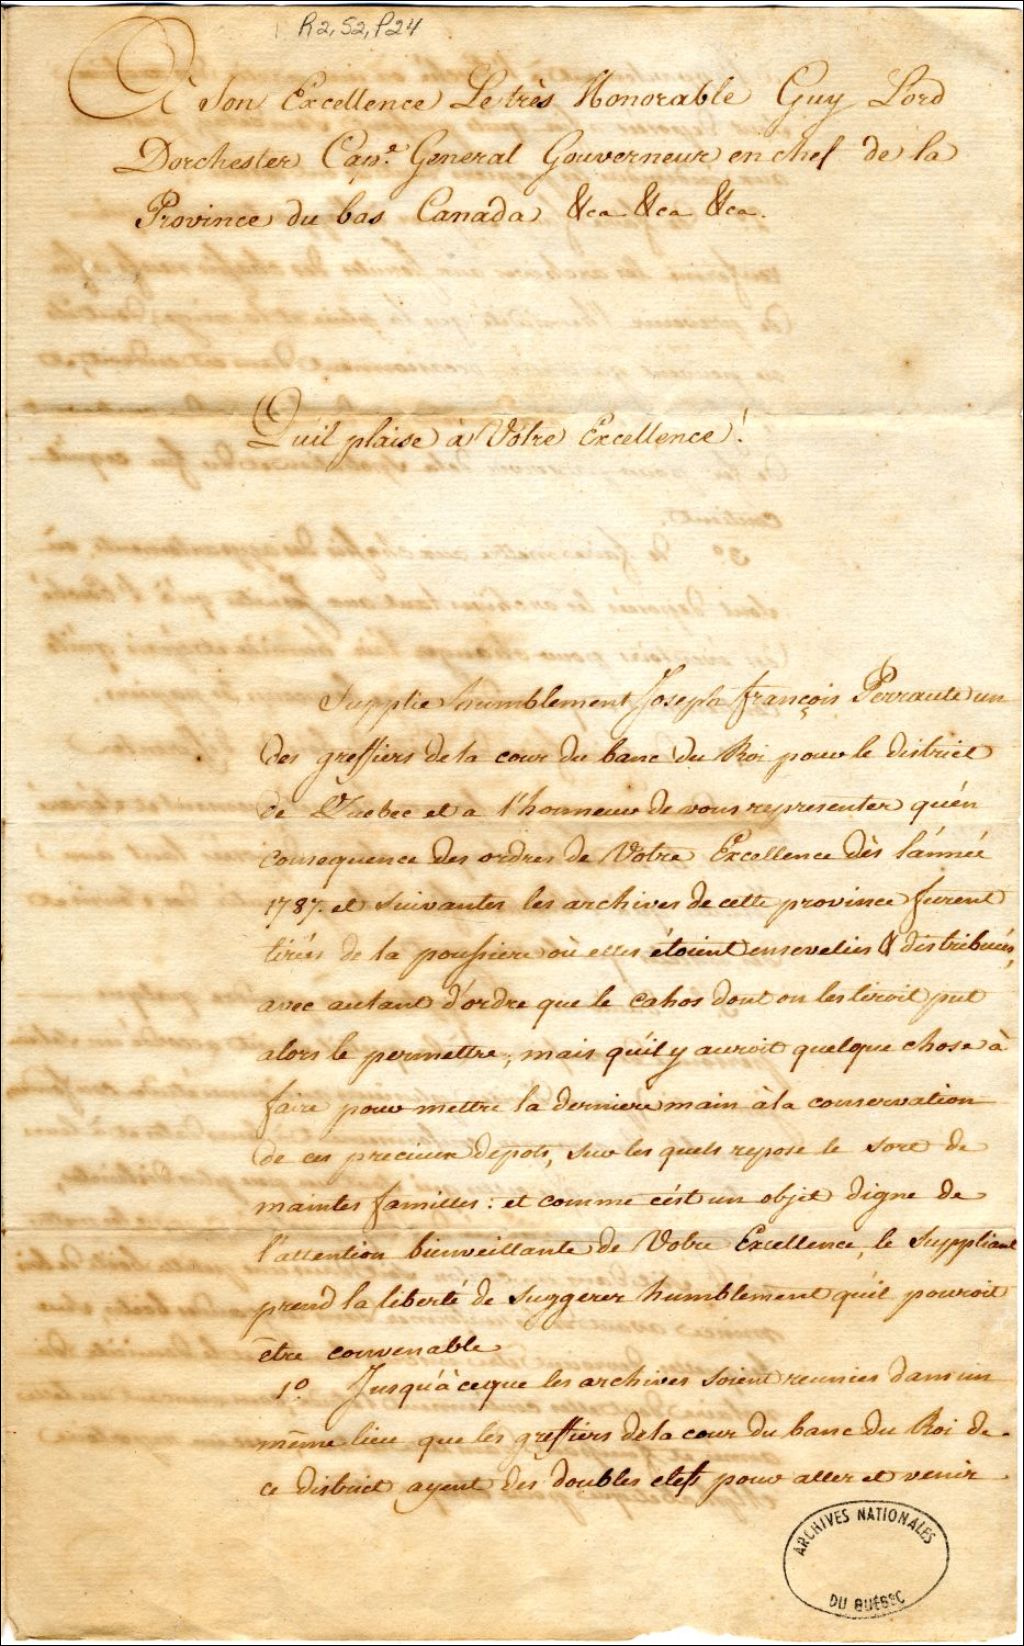 R2, S2, P24
A Son Excellence Le très Honorable Guy Lord
Dorchester Cap.e General Gouverneur en chef de la
Province du bas Canada &ca &ca &ca.
Qu'il plaise à Votre Excellence!
Supplie humblement Joseph françois Perrault un
des greffiers de la cour du banc du Roi pour le district
de Quebec et a l'honneur de vous representer qu'én
consequence des ordres de Votre Excellence dès l'année
1787. et suivantes les archives de cette province furent
tirées de la poussiere où elles étoient ensevelies & distribuées,
avec autant d'ordre que le cahos dont on les tiroit put
alors le permettre; mais qu'il y auroit quelque chose à
faire pour mettre la derniere main à la conservation
de ces precieux depots, sur les quels repose le sort de
maintes familles: et comme c'ést un objet digne de
l'attention bienveillante de Votre Excellence, le Suppliant
prend la liberté de suggerer humblement qu'il pouroit
être convenable
1.o Jusqu'à ceque les archives soient reunies dans un
même lieu que les greffiers de la cour du banc du Roi de
ce district ayent des doubles clefs pour aller et venir
ARCHIVES NATIONALES
DU QUÉBEC